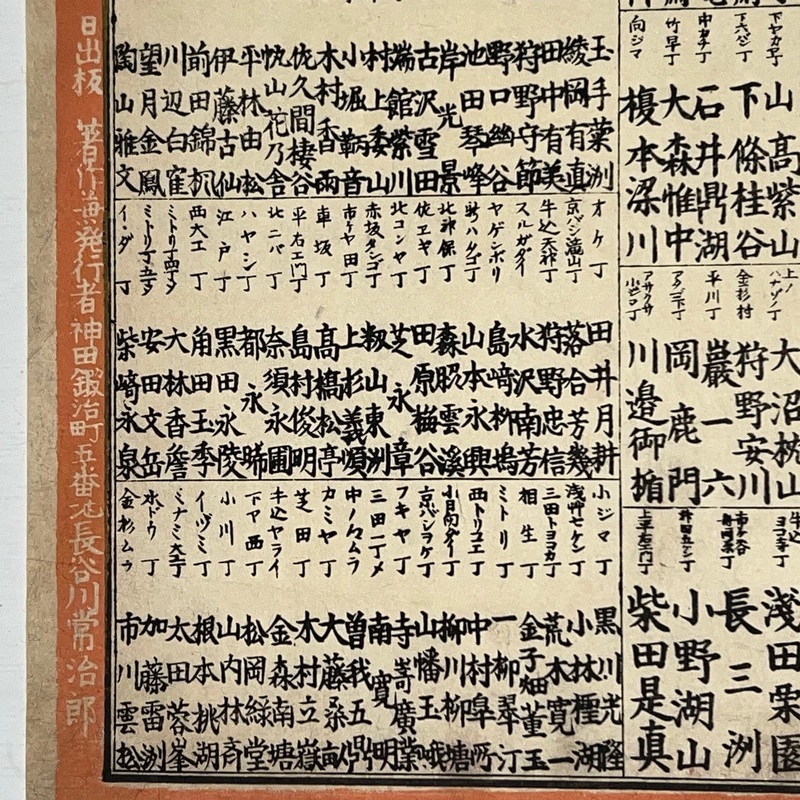 山高紫山
下條桂谷
石井鼎湖
大森惟中
榎本梁川
下六バン丁
中カチ丁
竹早丁
向ジマ
大沼枕山
狩野安川
巖一六
岡鹿門
川邉御楯
金杉村
平川丁
アタゴ下丁
淺田栗園
長三洲
小野湖山
柴田是真
綾岡有真
田中有美
狩野守節
野口幽谷
池田琴峰
岸光景
古沢雪田
端館紫川
村上委山
小堀鞆音
木村香雨
佐久間棲谷
平林由松
伊藤古仙
前田錦楓
川辺白寉
望月金鳳
陶山雅文
オケ丁
京バシ滝山丁
牛込天神丁
スルガダイ
ヤゲンボリ
新ハタゴ丁
北神保丁
佐エキ丁
北コンヤ丁
赤坂タンゴ丁
市ケヤ田丁
車坂丁
平右エ門丁
北ニバ丁
ハヤシ丁
江戸丁
西大工丁
ミトリ丁四丁メ
ミトリ丁五丁メ
イヽダ丁
田井月耕
落合芳幾
狩野忠信
水沢南芳
島崎柳塢
山本永興
森脇雲溪
田原梅谷
芝永章
籾山東洲
上杉義順
高橋松亭
島村俊明
奈須永圃
都永晞
黒田永陵
角田玉季
大林香詹
安田文岳
柴崎永泉
小ジマ丁
浅艸七ケン丁
三田トヨヲカ丁
相生丁
ミトリ丁
西トリコエ丁
小日向ダイ丁
京バシラケ丁
フキヤ丁
三田一丁メ
中ノクムラ
カミヤ丁
芝田丁
牛込ヤライ
下ヤ西丁
小川丁
イヅミ丁
ミナミ大工丁
水ドウ丁
金杉ムラ
黒川光隆
小林檉湖
荒木寛一
金子畑董玉
一柳翠汀
中村皐所
柳川柳塘
山幡玉峨
寺嵜廣業
南寶明
曽我五明
大藤桑畝
木村立嶽
金森南塘
松岡緑堂
山内林斉
根本桃湖
太田蓉峯
加藤雷洲
市川雲松
日出板 著作兼発行者 神田鍛冶町五番地 長谷川常治郎